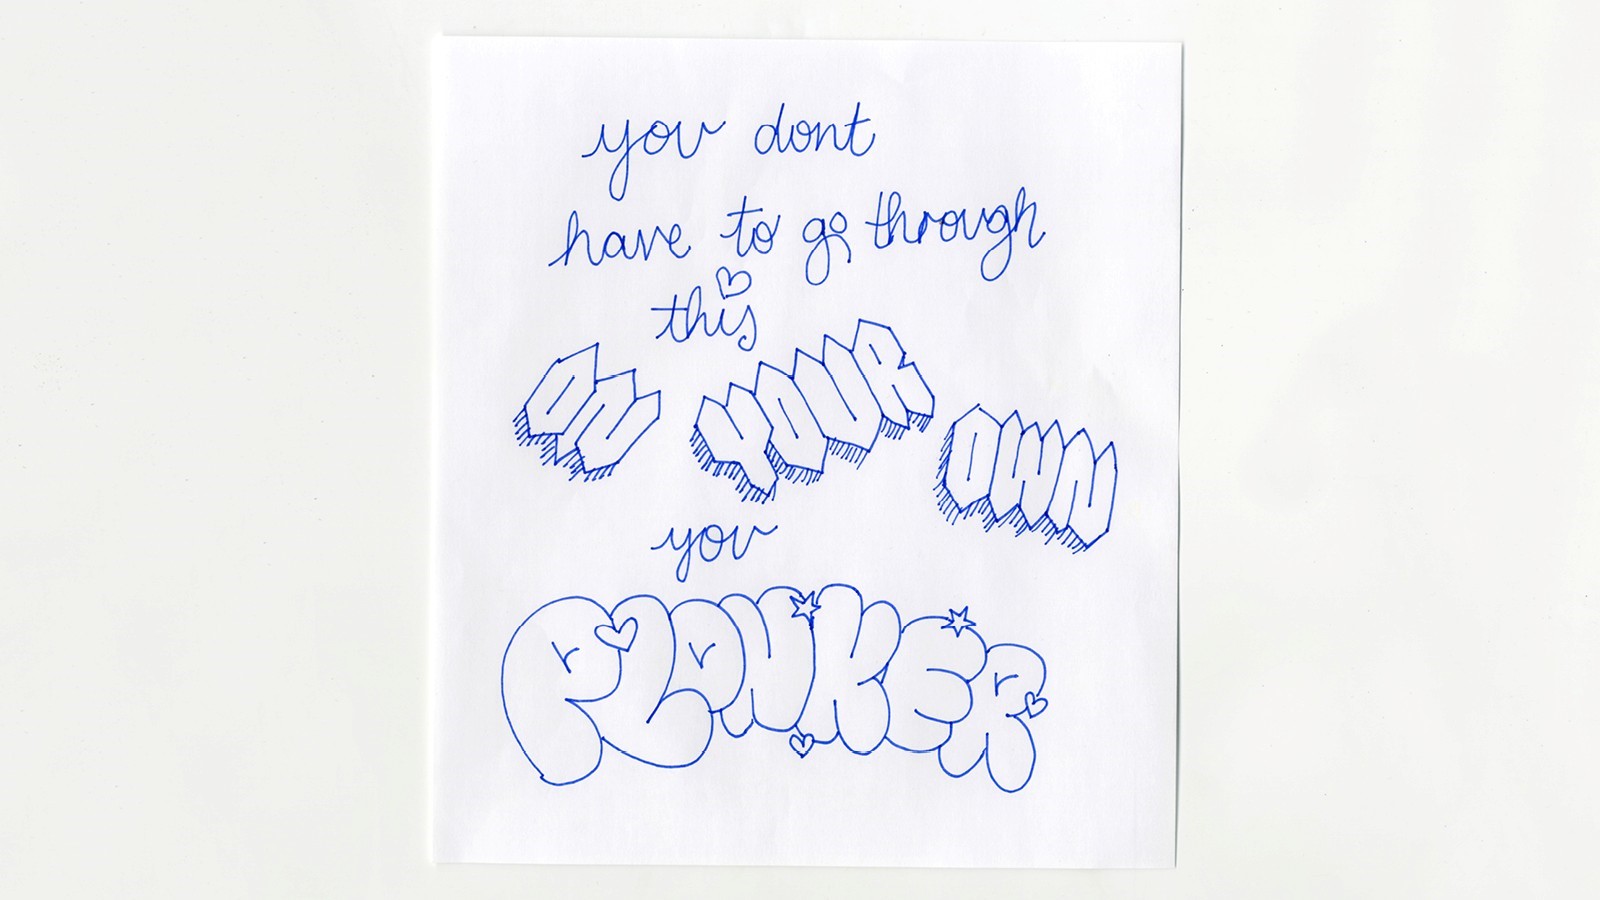 you dont
have to go through
this
ON YOUR OWN
you
PLONKER